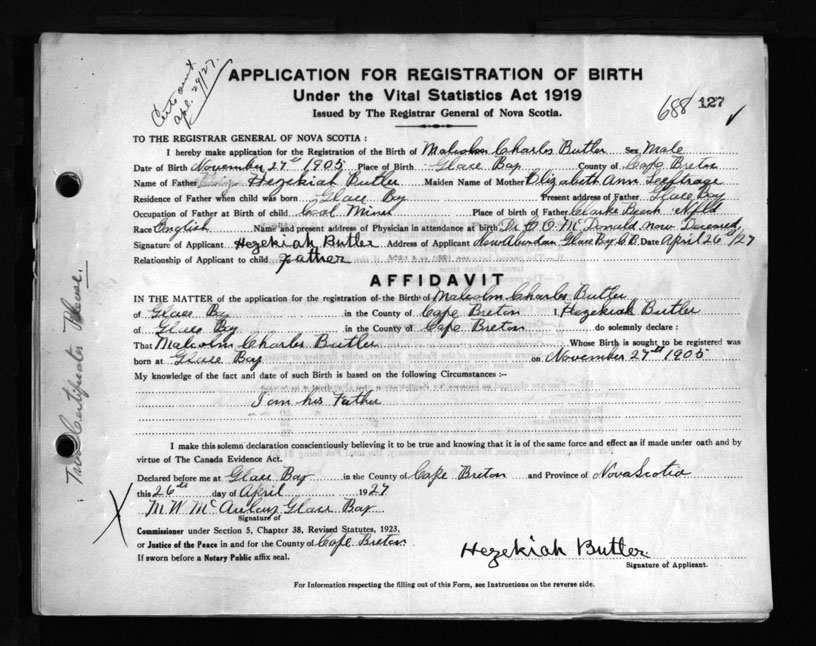 Certs sent
Apl. 29/27.
APPLICATION FOR REGISTRATION OF BIRTH
Under the Vital Statistics Act 1919
Issued by The Registrar General of Nova Scotia.
688 127
TO THE REGISTRAR GENERAL OF NOVA SCOTIA :
I hereby make application for the Registration of the Birth of Malcolm Charles Butler Sex Male
Date of Birth November 27th 1905 Place of Birth Glace Bay County of Cape Breton
Name of Father Hezekiah Butler Maiden Name of Mother Elizabeth Ann
Residence of Father when child was born Glace By Present address of Father Glace Bay
Occupation of Father at Birth of child Coal Miner Place of birth of Father Clarke Beach Nfld
Race English Name and present address of Physician in attendance at birth Dr J. O. McDonald now Deceased
Signature of Applicant Hezekiah Butler Address of Applicant New Aberdeen Glace By C.B. Date April 26th/27
Relationship of Applicant to child father
AFFIDAVIT
IN THE MATTER of the application for the registration of the Birth of Malcolm Charles Butler
of Glace By in the County of Cape Breton I, Hezekiah Butler
of Glace By in the County of Cape Breton do solemnly declare :
That Malcolm Charles Butler Whose Birth is sought to be registered was
born at Glace Bay on November 27th 1905
My knowledge of the fact and date of such Birth is based on the following Circumstances :--
I am his Father
I make this solemn declaration conscientiously believing it to be true and knowing that it is of the same force and effect as if made under oath and by
virtue of The Canada Evidence Act.
Declared before me at Glace Bay in the County of Cape Breton and Province of Nova Scotia
this 26th day of April 1927
M. W. McAulay Glace Bay
Signature of
Commissioner under Section 5, Chapter 38, Revised Statutes, 1923,
or Justice of the Peace in and for the County of Cape Breton
If sworn before a Notary Public affix seal.
Hezekiah Butler
Signature of Applicant.
For Information respecting the filling out of this Form, see Instructions on the reverse side.
Two Certificates Please.